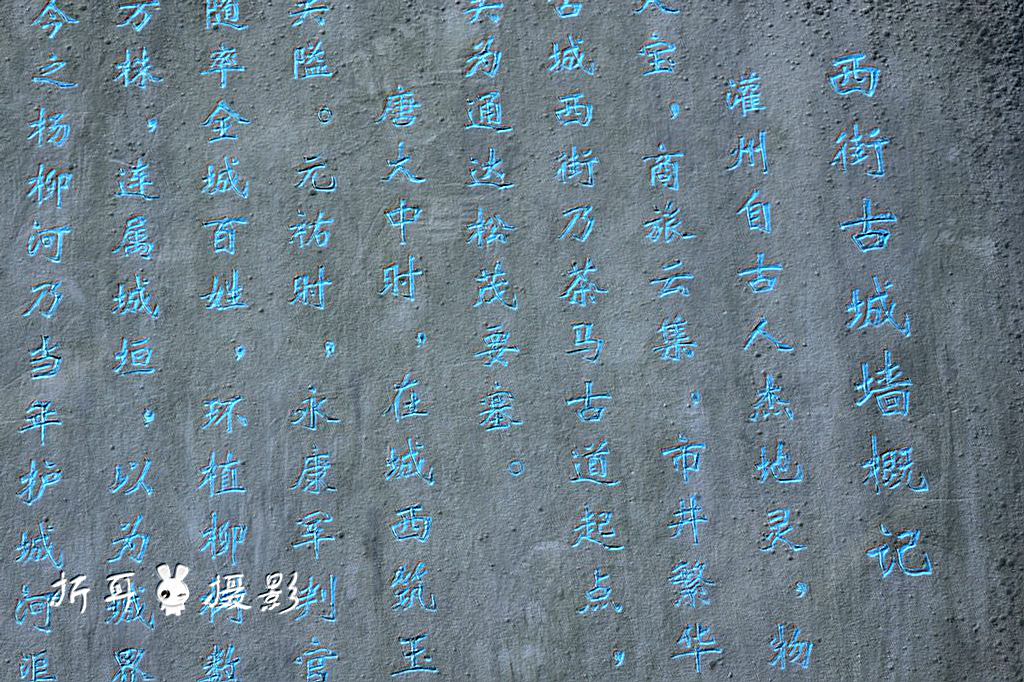 西街古城墙概记
灌州自古人杰地灵，物
宝，商旅云集，市井繁华
古城西街乃茶马古道起点，
为通达松茂要塞。
唐大中时，在城西筑玉
隘。元祐时，永康军判官
随率全城百姓，环植柳数
万株，连属城垣，以为城界
今之杨柳河乃当年护城河
折哥摄影